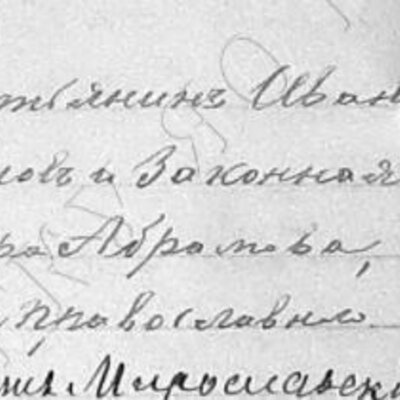 тьянинъ Иван
новъ и законная
ра Абрамова,
православно
Мирославск